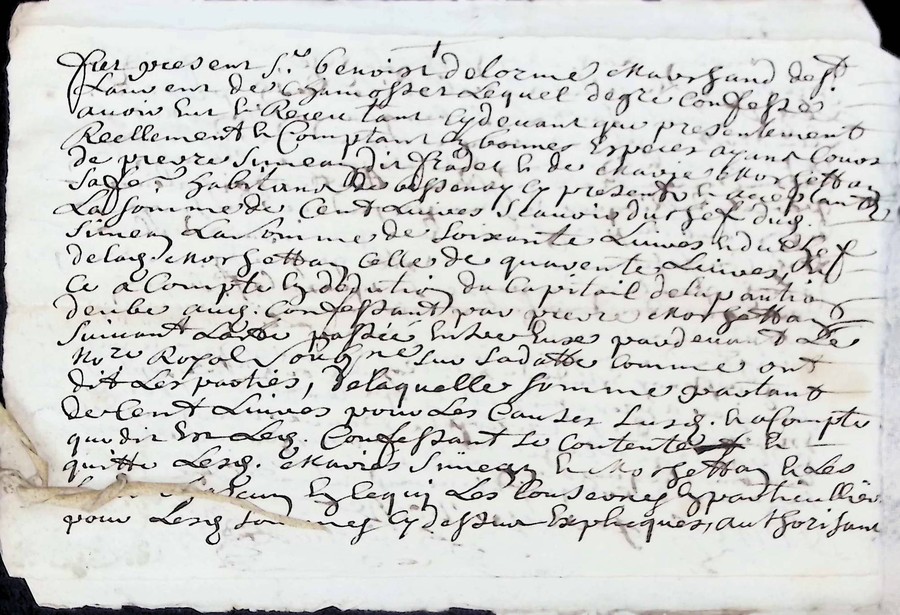 Fut present Sr. benoist delorme Marchand de St
Laurent de Chamosset Lequel de gré Confesse
avoir Eut & Receu tant Cydevant que presentement
Reellement & Comptant En bonnes Especes ayant Cours
de pierre Simean dit Cadet & de Marie Morgettan
Sa fe. habitans de presents & acceptants
La Somme de Cent Livres Scavoir du chef dud.
Simean La Somme de Soixante Livres & du Chef
de lad. Morgettan Celle de quarente Livres,
Ce a Compte & deduction du Capital de la pantion
deube aud. Confessant par pierre Morgettan
Suivant Lacte passée Entre Euxe pardevant Le
Nore Royal Soigne Sur Sadatte Comme ont
dit Les parties, De laquelle Somme partant
de Cent Livres pour Les Causes Susd. & a Compte
que dit Est Led. Confessant Se Contente &
quitte Lesd. Maries Simean & Morgettan & Les
Leurs & Les Consernes En particullier
pour Lesd Sommes Cy dessus Expliquees, authorisant